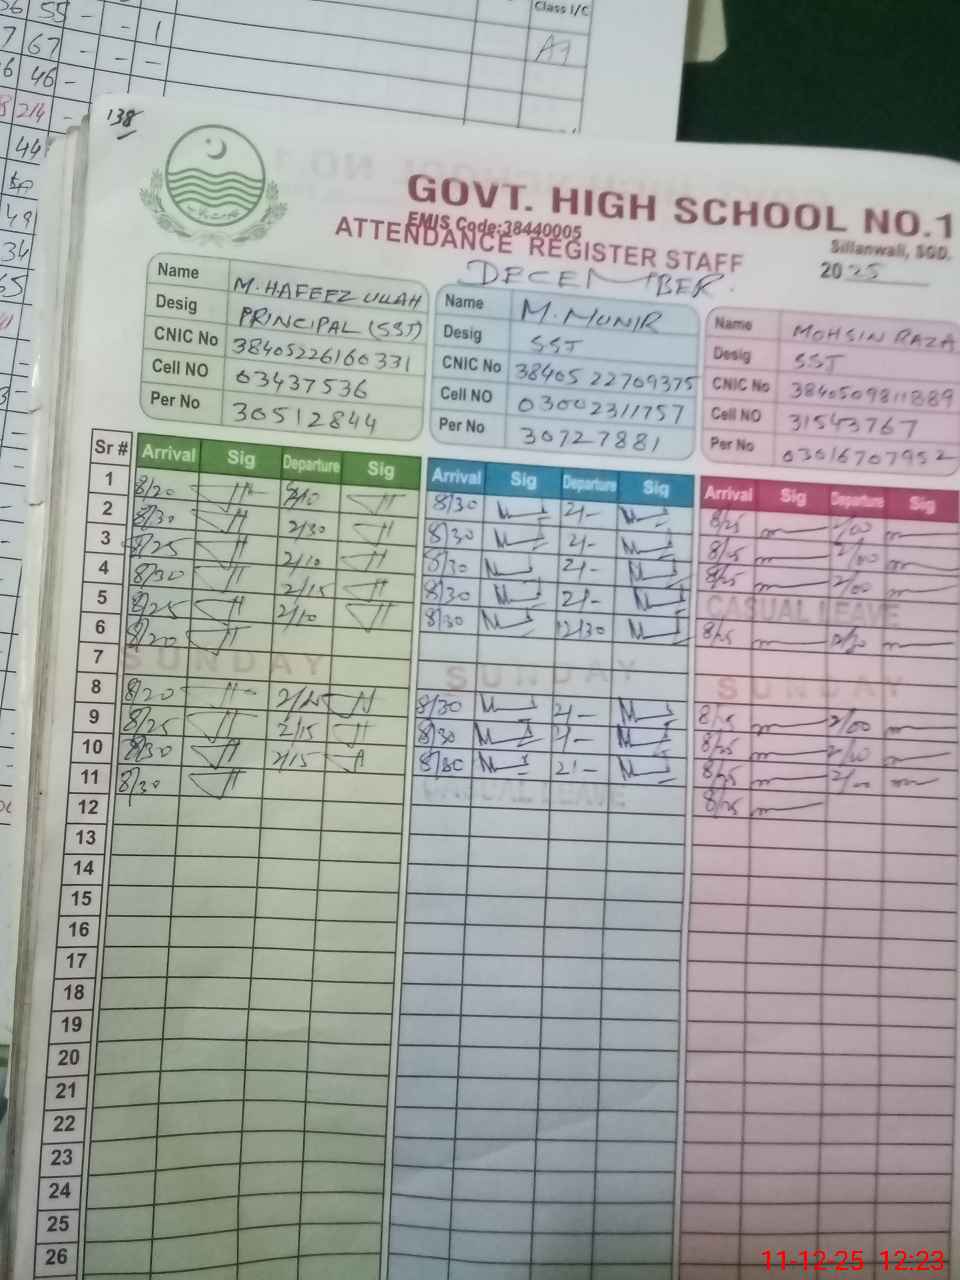 56 55 - - 1
Class I/C
7 67 - - -
A1
6 46 -
214 -
138
44
49
34
65
GOVT. HIGH SCHOOL NO.1
EMIS Code:38440005
Sillanwali, SGD.
ATTENDANCE REGISTER STAFF
2025
DECEMBER.
Name M. HAFEEZ ULLAH
Desig PRINCIPAL (SST)
CNIC No 3840522616 0331
Cell NO 03437536
Per No 30512844
Name M. MUNIR
Desig SST
CNIC No 38405 22709375
Cell NO 03002311757
Per No 30727881
Name MOHSIN RAZA
Desig SST
CNIC No 3840509811889
Cell NO 31543767
Per No 03016707952
Sr # Arrival Sig Departure Sig Arrival Sig Departure Sig Arrival Sig Departure Sig
1 8/20 8/30 2/- 8/25 2/00
2 8/30 2/30 8/30 2/- 8/25 2/00
3 8/25 2/10 8/30 2/- 8/25 2/00
4 8/30 2/15 8/30 2/- CASUAL LEAVE
5 8/25 2/10 8/30 12/30 8/25
6 8/20
7 SUNDAY SUNDAY SUNDAY
8 8/20 2/25 8/30 2/- 8/25 2/00
9 8/25 2/15 8/30 2/- 8/25
10 8/30 2/15 8/30 2/- 8/25 2/00
11 8/30 CASUAL LEAVE 8/25
12
13
14
15
16
17
18
19
20
21
22
23
24
25
26
11-12-25 12:23